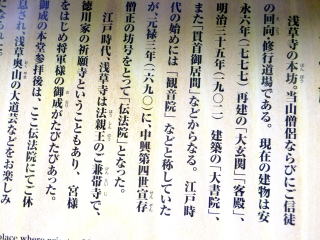 浅草寺の本坊。当山僧侶ならびにご信徒
の回向・修行道場である。現在の建物は安
永六年(一七七七)再建の「大玄関」「客殿」、
明治三十五年(一九〇二)建築の「大書院」、
また「貫首御居間」などからなる。江戸時
代の始めには「観音院」などと称していた
が、元禄三年(一六九〇)に、中興第四世宣存
僧正の坊号をとって「伝法院」となった。
江戸時代、浅草寺は法親王のご兼帯寺で、
徳川家の祈願寺ということもあり、宮様
をはじめ将軍様の御成がたびたびあった。
御成の本堂参拝後は、ここ伝法院にてご休
息され、浅草奥山の大道芸などをお楽しみ
place where